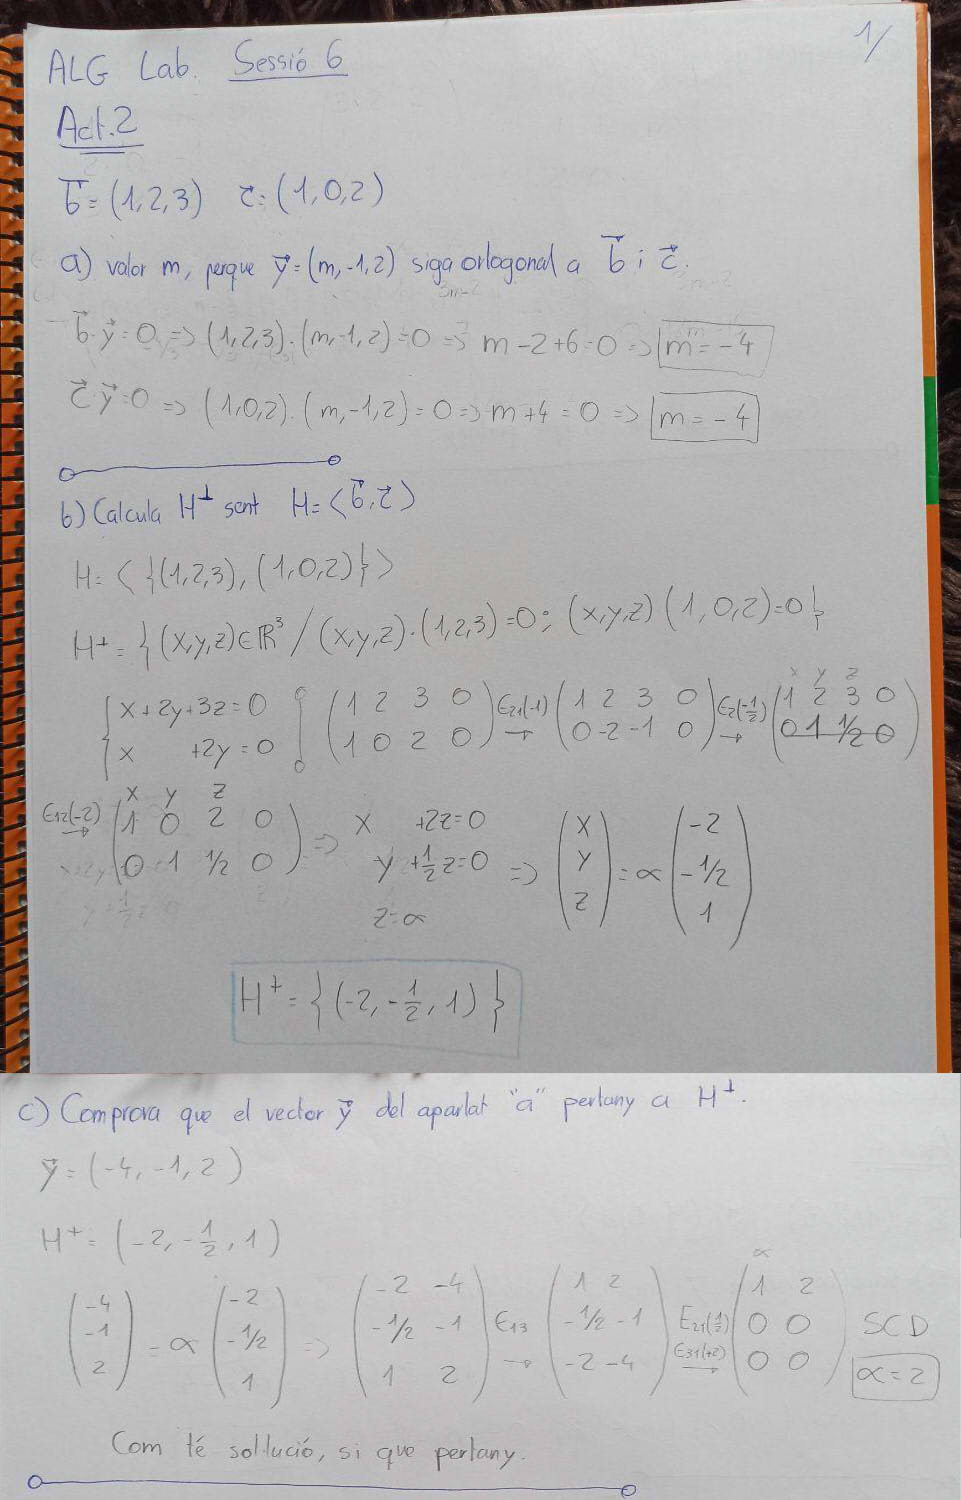 1/
ALG Lab. Sessió 6
Act.2
b⃗=(1,2,3) c⃗=(1,0,2)
a) valor m, perque y⃗=(m,-1,2) siga ortogonal a b⃗ i c⃗.
b⃗·y⃗=0 => (1,2,3)·(m,-1,2)=0 => m-2+6=0 => m=-4
c⃗·y⃗=0 => (1,0,2)·(m,-1,2)=0 => m+4=0 => m=-4
b) Calcula H⊥ sent H=<b⃗,c⃗>
H=<{(1,2,3),(1,0,2)}>
H⊥={(x,y,z)∈ℝ³/(x,y,z)·(1,2,3)=0; (x,y,z)(1,0,2)=0}
x y z
{ x+2y+3z=0 (1 2 3 0) E21(-1) (1 2 3 0) E2(-1/2) (1 2 3 0)
x +2y=0 (1 0 2 0) → (0 -2 -1 0) → (0 1 1/2 0)
x y z
E12(-2) (1 0 2 0) => x +2z=0 (x) (-2)
→ (0 1 1/2 0) y+1/2z=0 => (y) =α (-1/2)
z=α (z) (1)
H⊥={(-2,-1/2,1)}
c) Comprova que el vector y⃗ del apartat "a" pertany a H⊥.
y⃗=(-4,-1,2)
H⊥=(-2,-1/2,1)
α
(-4) (-2) (-2 -4) (1 2) (1 2)
(-1) =α (-1/2) => (-1/2 -1) E13 (-1/2 -1) E21(1/2) (0 0) SCD
(2) (1) (1 2) → (-2 -4) E31(+2) → (0 0) α=2
Com té sol·lució, si que pertany.